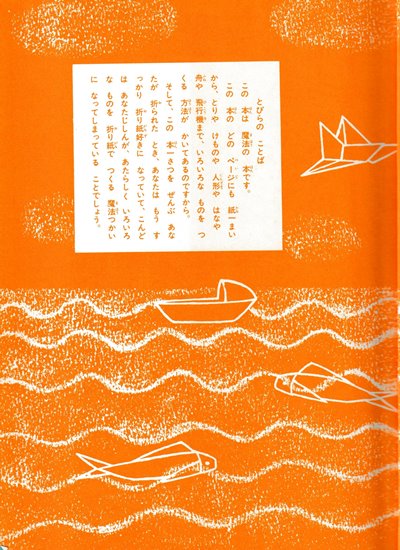 とびらの ことば
この 本は 魔法の 本です。
この 本の どの ページにも 紙一まい
から、とりや けものや 人形や はなや
舟や 飛行機まで、いろいろな ものを つ
くる 方法が かいてあるのですから。
そして、この 本一さつを ぜんぶ あな
たが 折られた とき、あなたは もう す
っかり 折り紙好きに なっていて、こんど
は あなたじしんが、あたらしく いろいろ
な ものを 折り紙で つくる 魔法つかい
に なってしまっている ことでしょう。